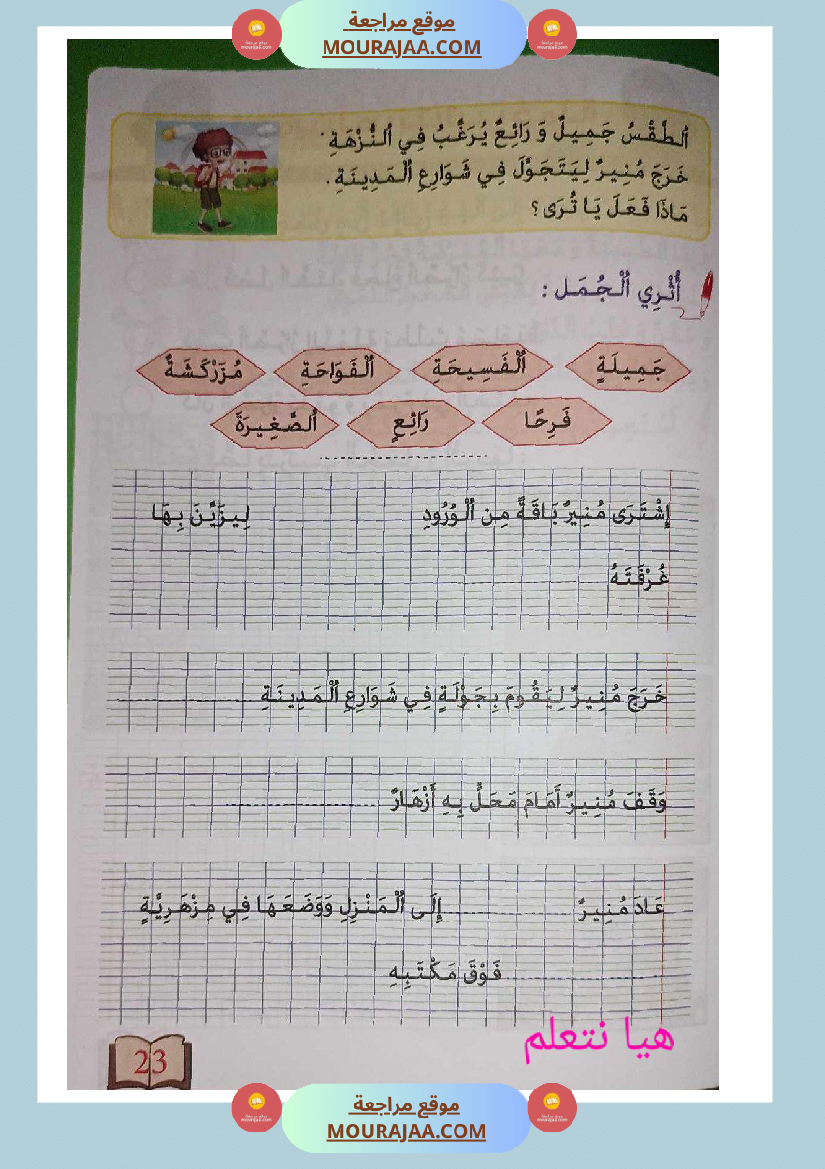 موقع مراجعة
MOURAJAA.COM
اَلطَّقْسُ جَمِيلٌ وَ رَائِعٌ يُرَغِّبُ فِي اَلنُّزْهَةِ.
خَرَجَ مُنِيرٌ لِيَتَجَوَّلَ فِي شَوَارِعِ اَلْمَدِينَةِ.
مَاذَا فَعَلَ يَا تُرَى؟
أُثْرِي اَلْجُمَل :
جَمِيلَةٍ اَلْفَسِيحَةِ اَلْفَوَاحَةِ مُزَرْكَشَةٌ
فَرِحًا رَائِعٍ اَلصَّغِيرَةَ
إِشْتَرَى مُنِيرٌ بَاقَةً مِن اَلْوُرُودِ لِيزَيِّنَ بِهَا
غُرْفَتَهُ ..........
خَرَجَ مُنِيرٌ لِيَقُومَ بِجَوْلَةٍ فِي شَوَارِعِ اَلْمَدِينَةِ ..........
وَقَفَ مُنِيرٌ أَمَامَ مَحَلٍّ بِهِ أَزْهَارٌ ..........
عَادَ مُنِيرٌ .......... إِلَى اَلْمَنْزِلِ وَوَضَعَهَا فِي مِزْهَرِيَّةٍ
.......... فَوْقَ مَكْتَبِهِ
هيا نتعلم
23
موقع مراجعة
MOURAJAA.COM